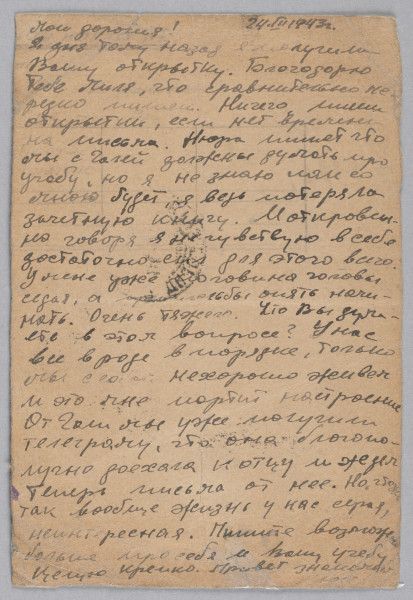 Мои дорогие! 24.III 1943г.
2 дня тому назад получили
Вашу открытку. Благодарю
тебя Миля, что сравнительно не
редко пишешь. Ничего пиши
открытки, если нет времени
на письма. Нюра пишет что
мы с Галей должны думать про
учобу, но я не знаю как со
мною будет, я ведь потеряла
зачетную книгу. И откровен-
но говоря я не чувствую в себе
достаточно сил для этого всего.
У меня уже половина головы
седая, а чтобы опять начи-
нать. Очень тяжело. Что Вы дума-
ете в этом вопросе? У нас
все вроде в порядке, только
мы с нехорошо живем
и это мне портит настроение
От Гали мы уже получили
телеграму, что она благопо-
лучно доехала к отцу и ждем
теперь письма от нее. Но,
так вообще жизнь у нас серая,
неинтересная. Пишите возможно
больше про себя и Вашу учебу
Целую крепко. Привет знакомым